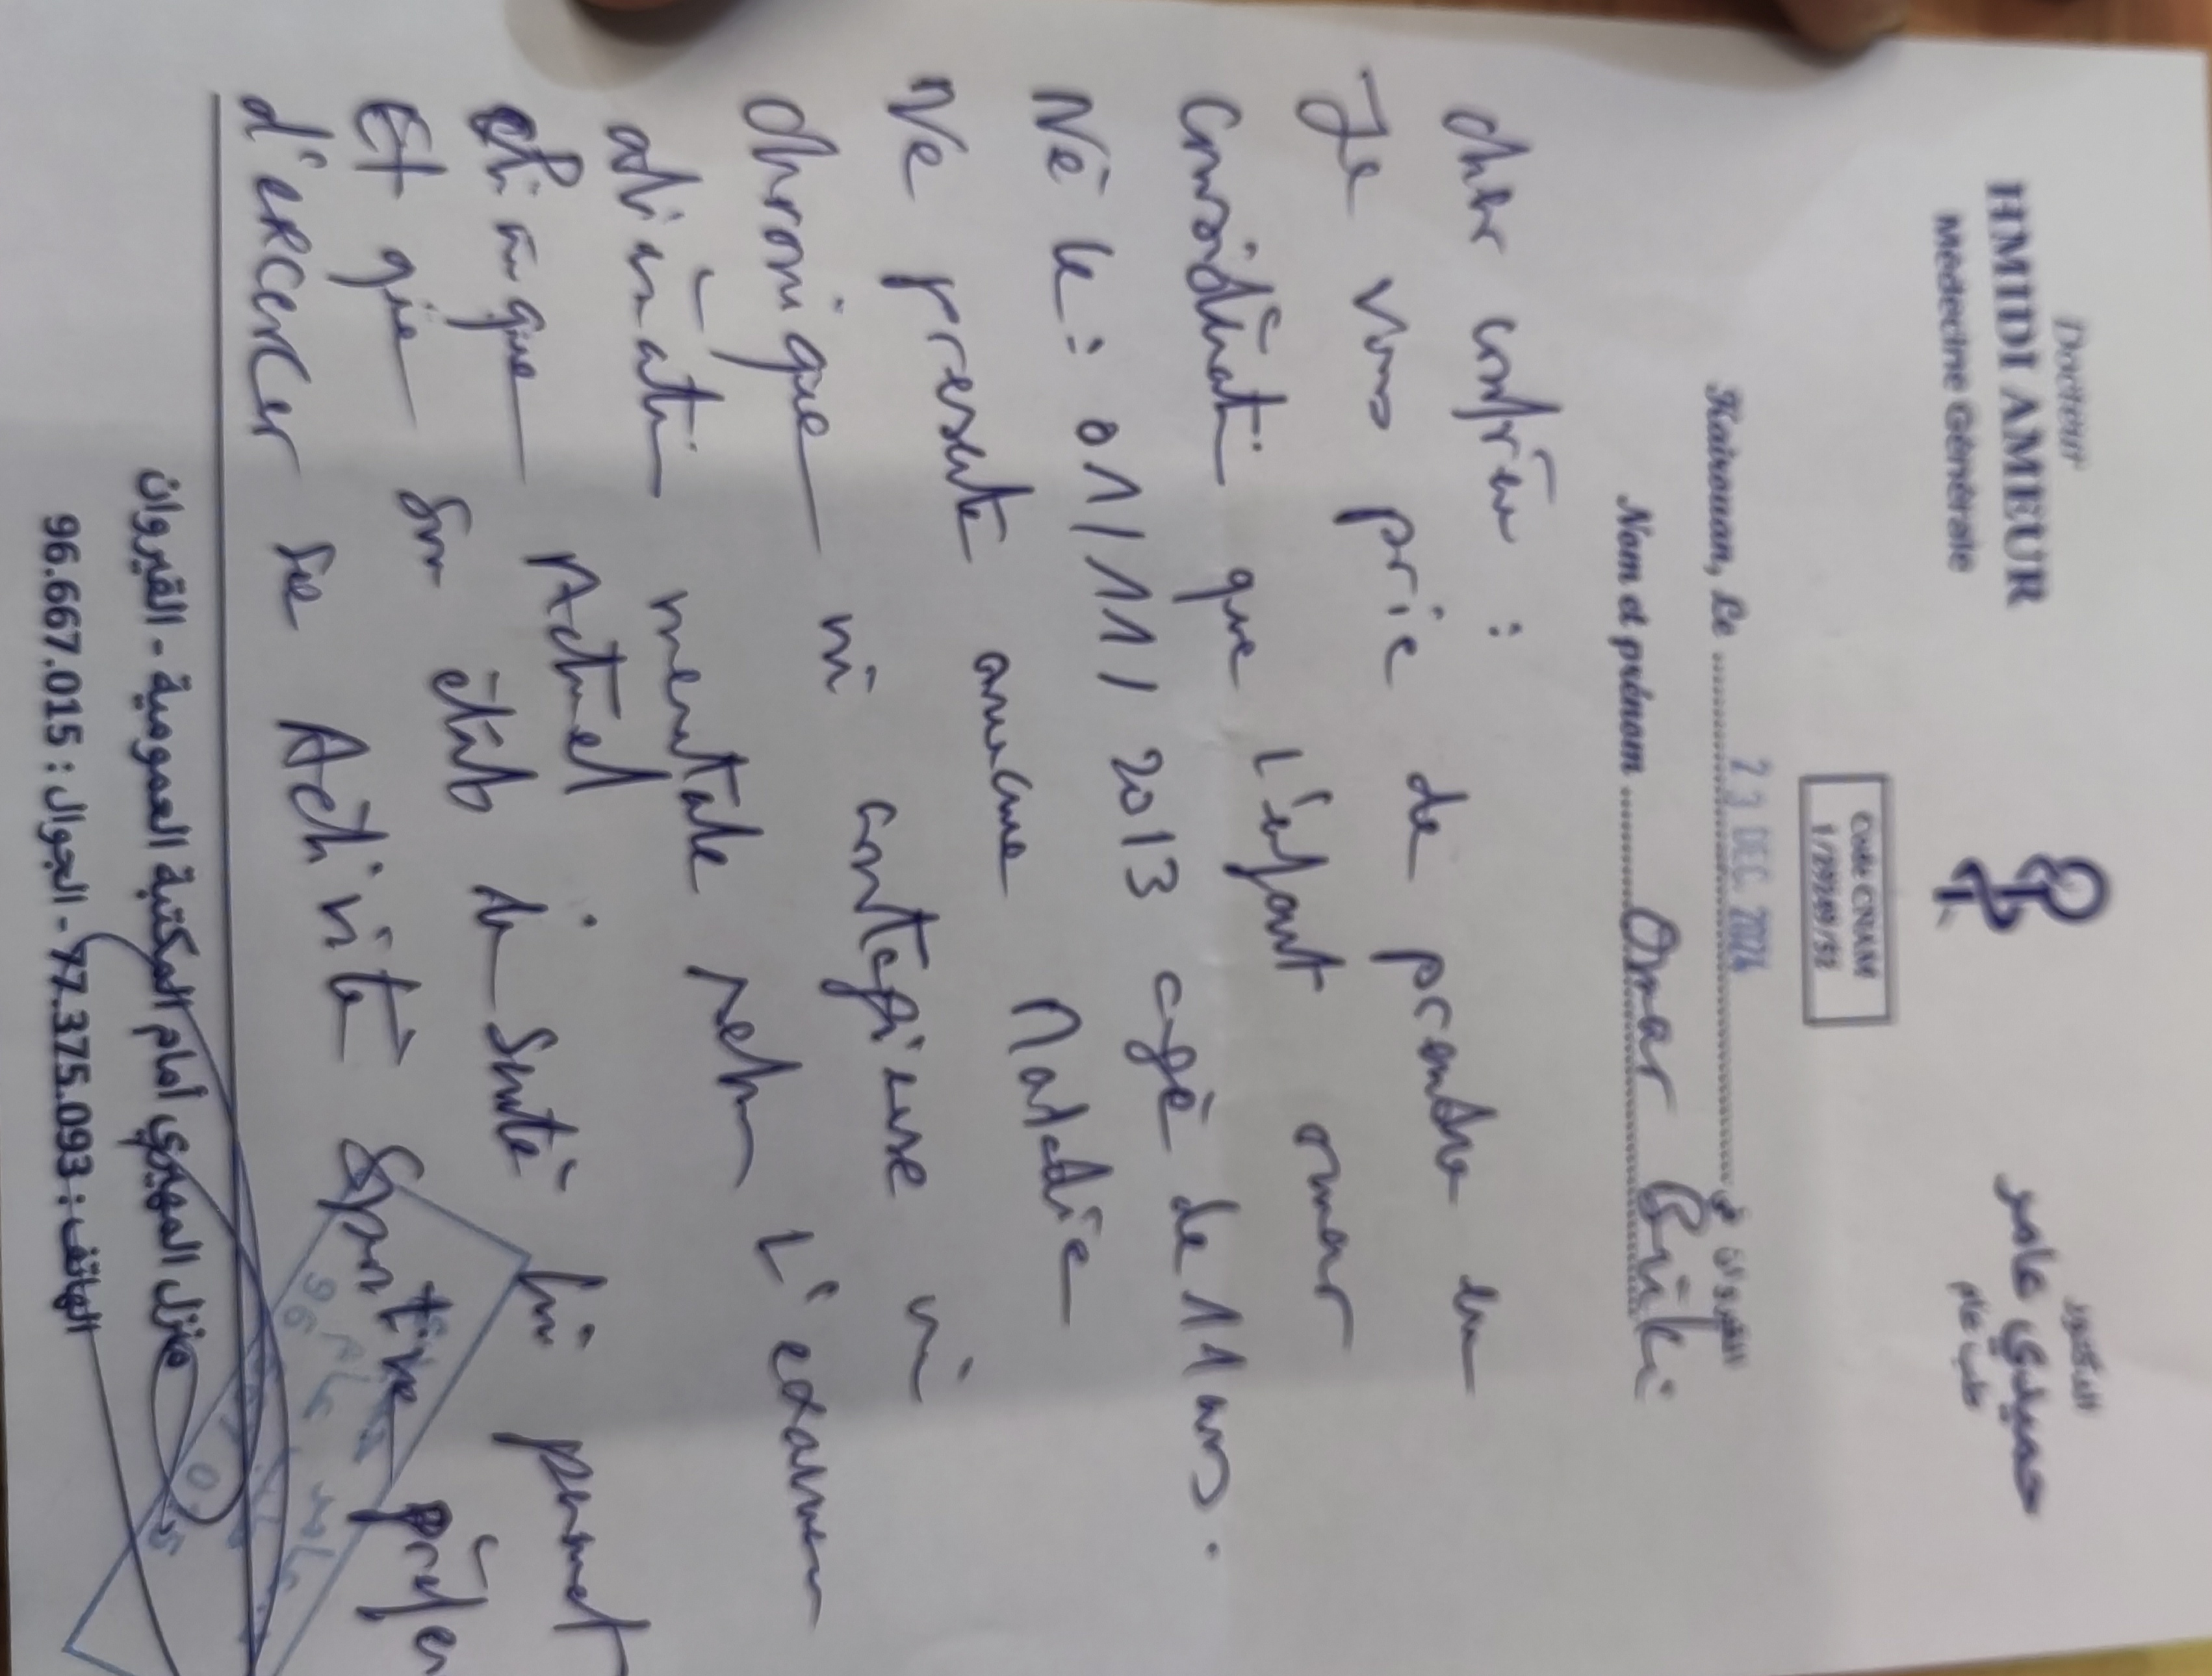 Docteur
HMIDI AMEUR
Médecine Générale
الدكتور
حميدي عامر
طب عام
Code CNAM
Kairouan, Le 23 DEC. 2024 القيروان في
Nom et prénom Omar
cher confrère :
Je vous prie de prendre en
considérati que l'enfant omar
Né le : 01/11/2013 agé de 11 ans.
Ne presente aucune Maladie
chronique ni contagieuse ni
aliénati mentale selon L'examen
clinique Actuel
Et que son état de Santé lui permet
d'exercer Se Activité Sportive préfer
منزل المهيري أمام المكتبة العمومية - القيروان
الهاتف : 77.375.093 - الجوال : 96.667.015